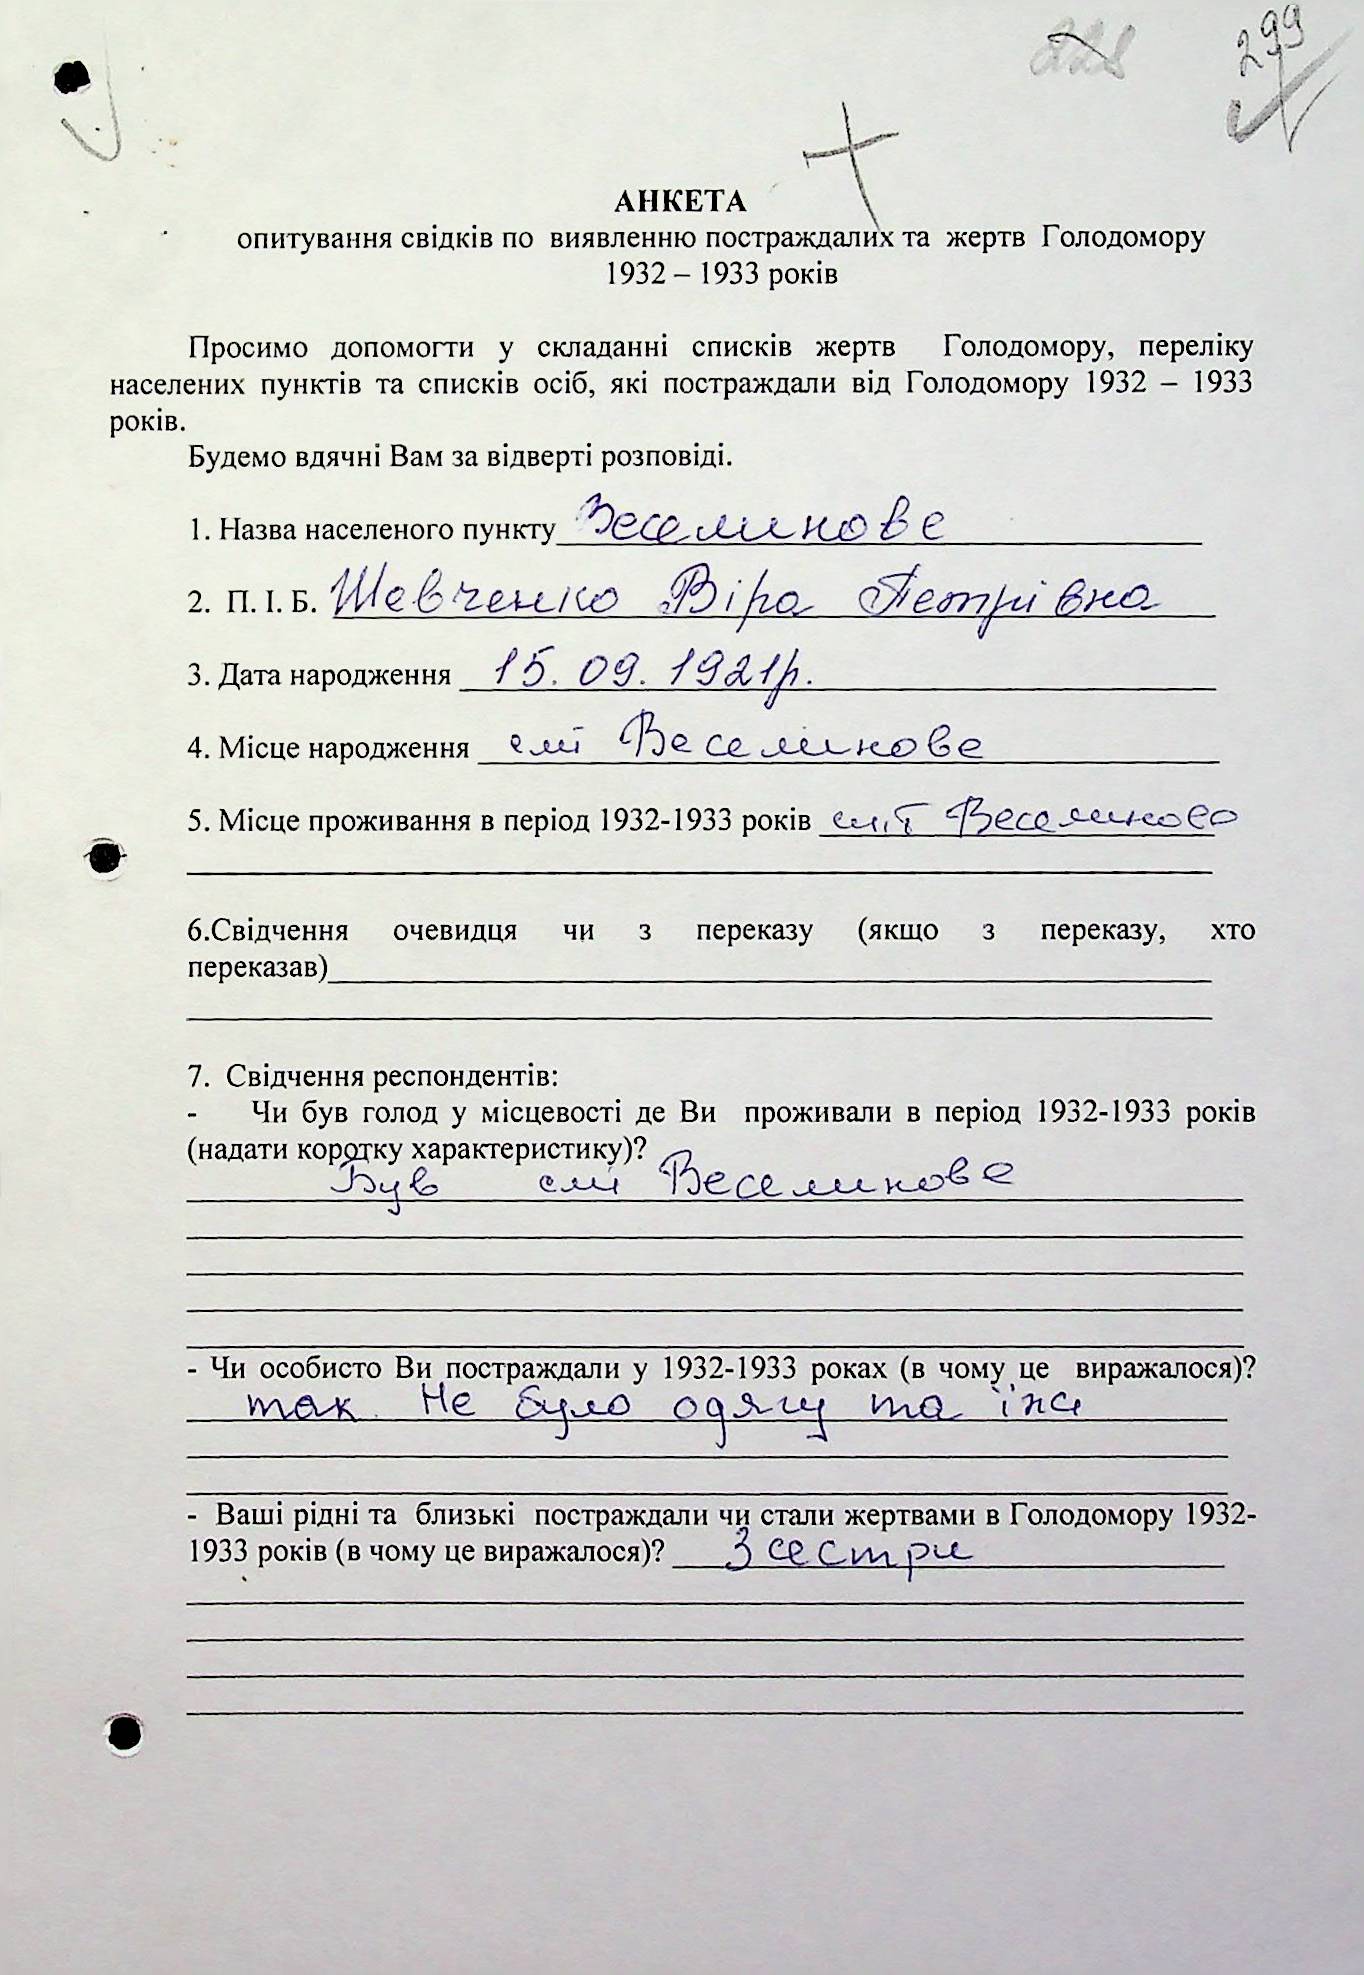 299
АНКЕТА
опитування свідків по виявленню постраждалих та жертв Голодомору
1932 – 1933 років
Просимо допомогти у складанні списків жертв Голодомору, переліку
населених пунктів та списків осіб, які постраждали від Голодомору 1932 – 1933
років.
Будемо вдячні Вам за відверті розповіді.
1. Назва населеного пункту Веселинове
2. П. І. Б. Шевченко Віра Петрівна
3. Дата народження 15.09.1921р.
4. Місце народження смт Веселинове
5. Місце проживання в період 1932-1933 років смт Веселиново
6.Свідчення очевидця чи з переказу (якщо з переказу, хто
переказав)
7. Свідчення респондентів:
- Чи був голод у місцевості де Ви проживали в період 1932-1933 років
(надати коротку характеристику)?
Був смт Веселинове
- Чи особисто Ви постраждали у 1932-1933 роках (в чому це виражалося)?
так. Не було одягу та їжі
- Ваші рідні та близькі постраждали чи стали жертвами в Голодомору 1932-
1933 років (в чому це виражалося)? 3 сестри